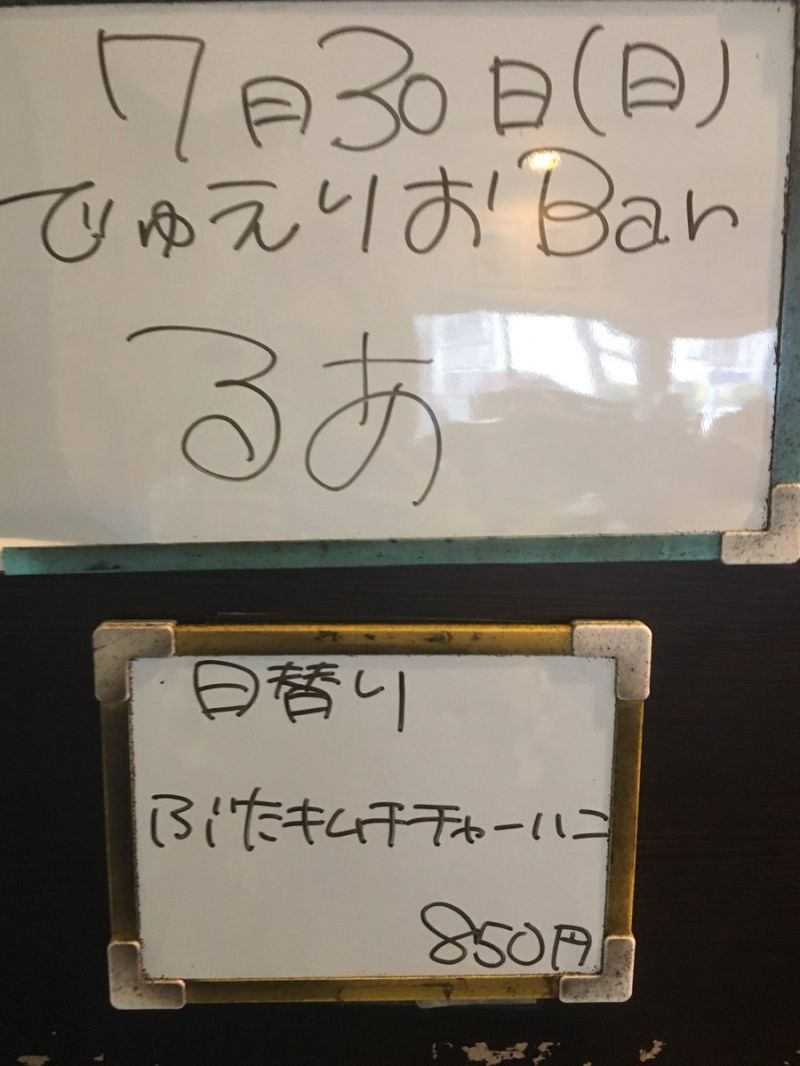 7月30日(日)
でゅえりおBar
るあ
日替り
ぶたキムチチャーハン
850円